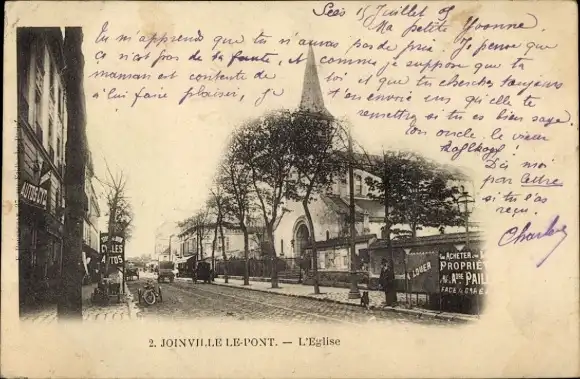 Sées 15 Juillet 05
Ma petite Yvonne.
Tu m'apprends que tu n'auras pas de prix. Je pense que
ce n'est pas de ta faute, et comme je suppose que ta
maman est contente de toi et que tu cherches toujours
à lui faire plaisir, je t'en envoie un qu'elle te
remettra si tu es bien sage.
Ton oncle. le vieux
Dis moi
par lettre
si tu l'as
reçu.
Charles
AUTOS
CYCLES
AUTOS
A LOUER
A ACHETER
PROPRIÉTÉ
2. JOINVILLE-LE-PONT. — L'Eglise